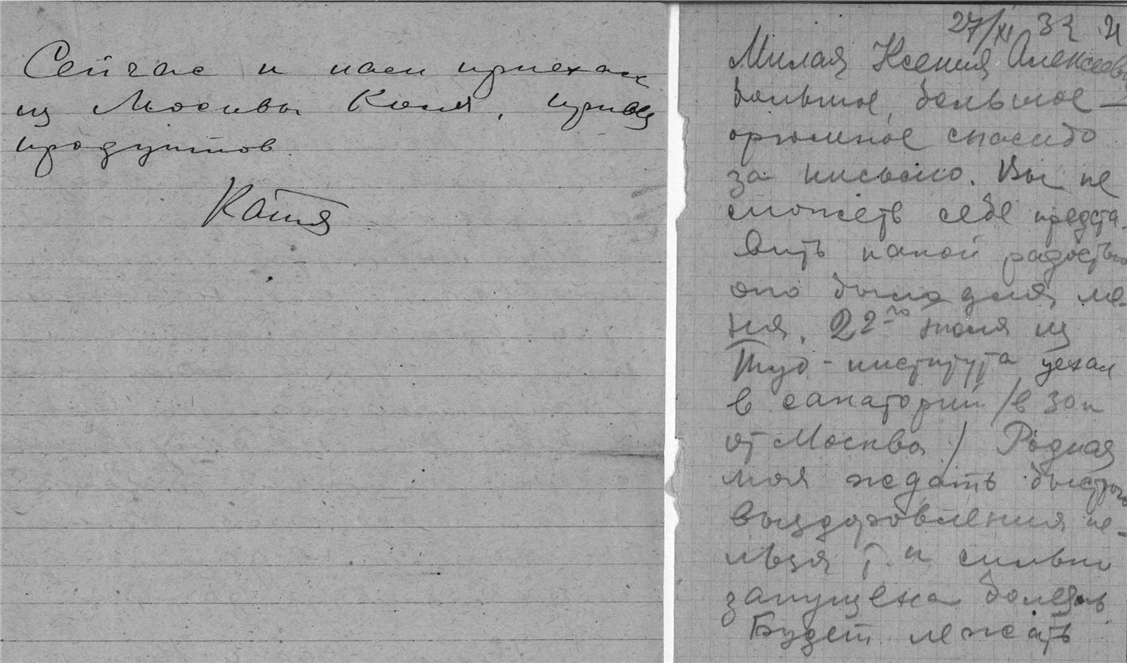 Сейчас к нам приехал
из Москвы Коля, привез
продуктов
Катя
27/XI 32 г
Милая Ксения Алексеевна
Большое, большое —
огромное спасибо
за письмо. Вы не
сможеть себе предста-
вить какой радостью
оно было для ме-
ня. 22го июля из
Туб-института уехал
в санаторий /в 30 км
от Москвы/ Родная
моя ждать быстрого
выздоровления не-
льзя т.к сильно
запущена болезнь
Будет лежать